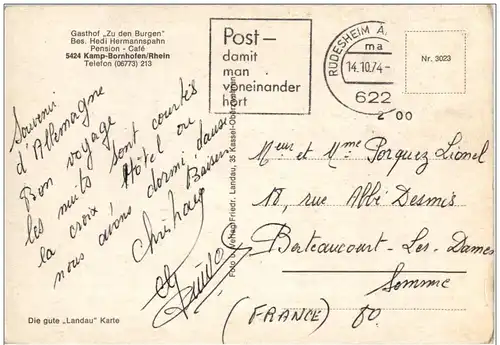 Gasthof „Zu den Burgen"
Bes. Hedi Hermannspahn
Pension - Café
5424 Kamp-Bornhofen/Rhein
Telefon (06773) 213
Post —
damit
man
voneinander
hört
RÜDESHEIM A.
ma
14.10.74-
622
Nr. 3023
Souvenir
d'Allemagne
Bon voyage
les nuits sont courtes
la croix Hôtel ou
nous avons dormi, danse
Baisers
Foto u. Verlag Friedr. Landau, 35 Kassel-Oberzwehren
Meur et Mme Porquez Lionel
18, rue Abbé Desmis
Berteaucourt-Les-Dames
Somme
(FRANCE) 80
Die gute „Landau" Karte